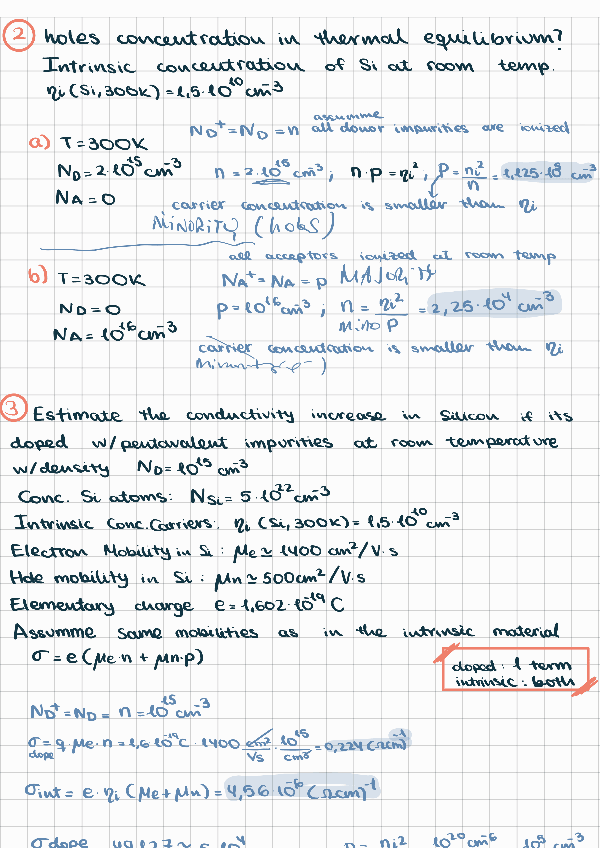 2 holes concentration in thermal equilibrium?
Intrinsic concentration of Si at room temp.
ni (Si, 300k) = 1,5·10^10 cm^-3
assumme
ND+ = ND = n all donor impurities are ionized
a) T = 300K
ND = 2·10^15 cm^-3 n = 2·10^15 cm^-3 ; n·p = ni^2 , p = ni^2/n = 1,125·10^5 cm^-3
NA = 0 carrier concentration is smaller than ni
MINORITY (holes)
all acceptors ionized at room temp
b) T = 300K NA+ = NA = p MAJORITY
ND = 0 p = 10^16 cm^-3 ; n = ni^2/p = 2,25·10^4 cm^-3
NA = 10^16 cm^-3 mino
carrier concentration is smaller than ni
3 Estimate the conductivity increase in Silicon if its
doped w/ pentavalent impurities at room temperature
w/density ND = 10^15 cm^-3
Conc. Si atoms: NSi = 5·10^22 cm^-3
Intrinsic Conc. Carriers: ni (Si, 300k) = 1,5·10^10 cm^-3
Electron Mobility in Si : μe ≃ 1400 cm^2/V·s
Hole mobility in Si : μn ≃ 500cm^2/V·s
Elementary charge e = 1,602·10^-19 C
Assumme same mobilities as in the intrinsic material
σ = e (μe·n + μn·p)
doped : 1 term
intrinsic : both
ND+ = ND = n = 10^15 cm^-3
σdope = q·μe·n = 1,6·10^-19 C · 1400 cm^2/Vs · 10^15/cm^3 = 0,224 (Ωcm)^-1
σint = e·ni (μe + μn) = 4,56·10^-6 (Ωcm)^-1
σdope